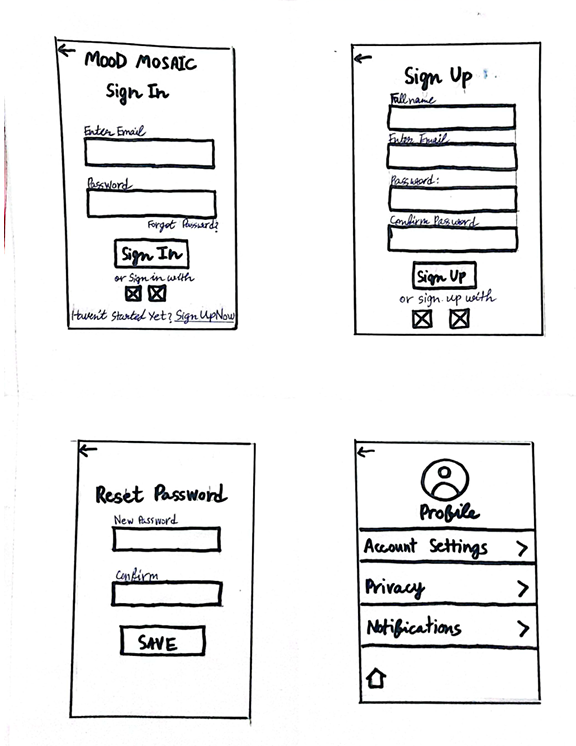 MOOD MOSAIC
Sign In
Enter Email
Password
Forgot Password?
Sign In
or Sign in with
Haven't Started Yet? Sign Up Now
Sign Up
Full name
Enter Email
Password:
Confirm Password
Sign Up
or sign up with
Reset Password
New Password
Confirm
SAVE
Profile
Account Settings >
Privacy >
Notifications >